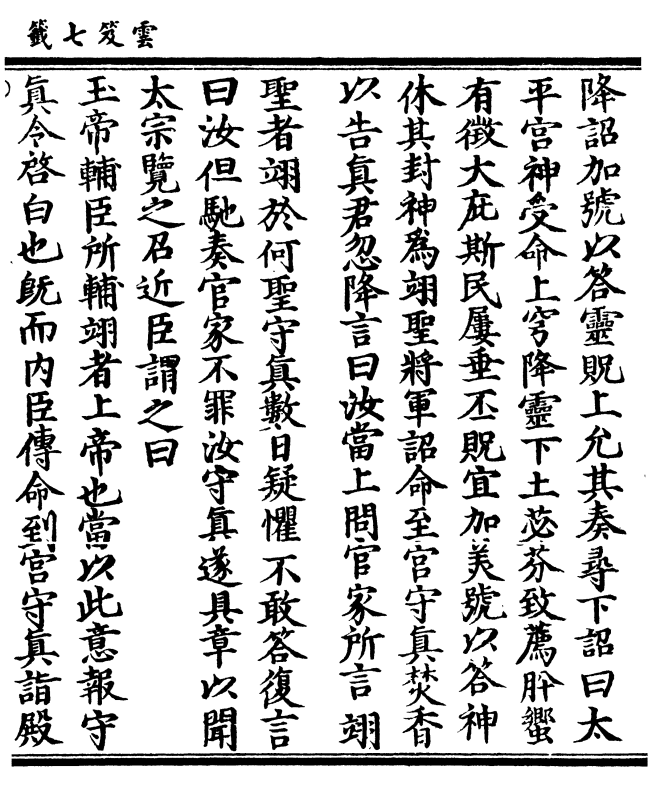 雲笈七籤
降詔加號以答靈貺上允其奏尋下詔曰太
平宫神受命上穹降靈下土苾芬致薦肸蠁
有徵大庇斯民屢垂丕貺宜加美號以答神
休其封神爲翊聖將軍詔命至宫守真焚香
以告真君忽降言曰汝當上問官家所言翊
聖者翊於何聖守真數日疑懼不敢答復言
曰汝但馳奏官家不罪汝守真遂具章以聞
太宗覽之召近臣謂之曰
玉帝輔臣所輔翊者上帝也當以此意報守
真令啓白也旣而内臣傳命到宫守真詣殿